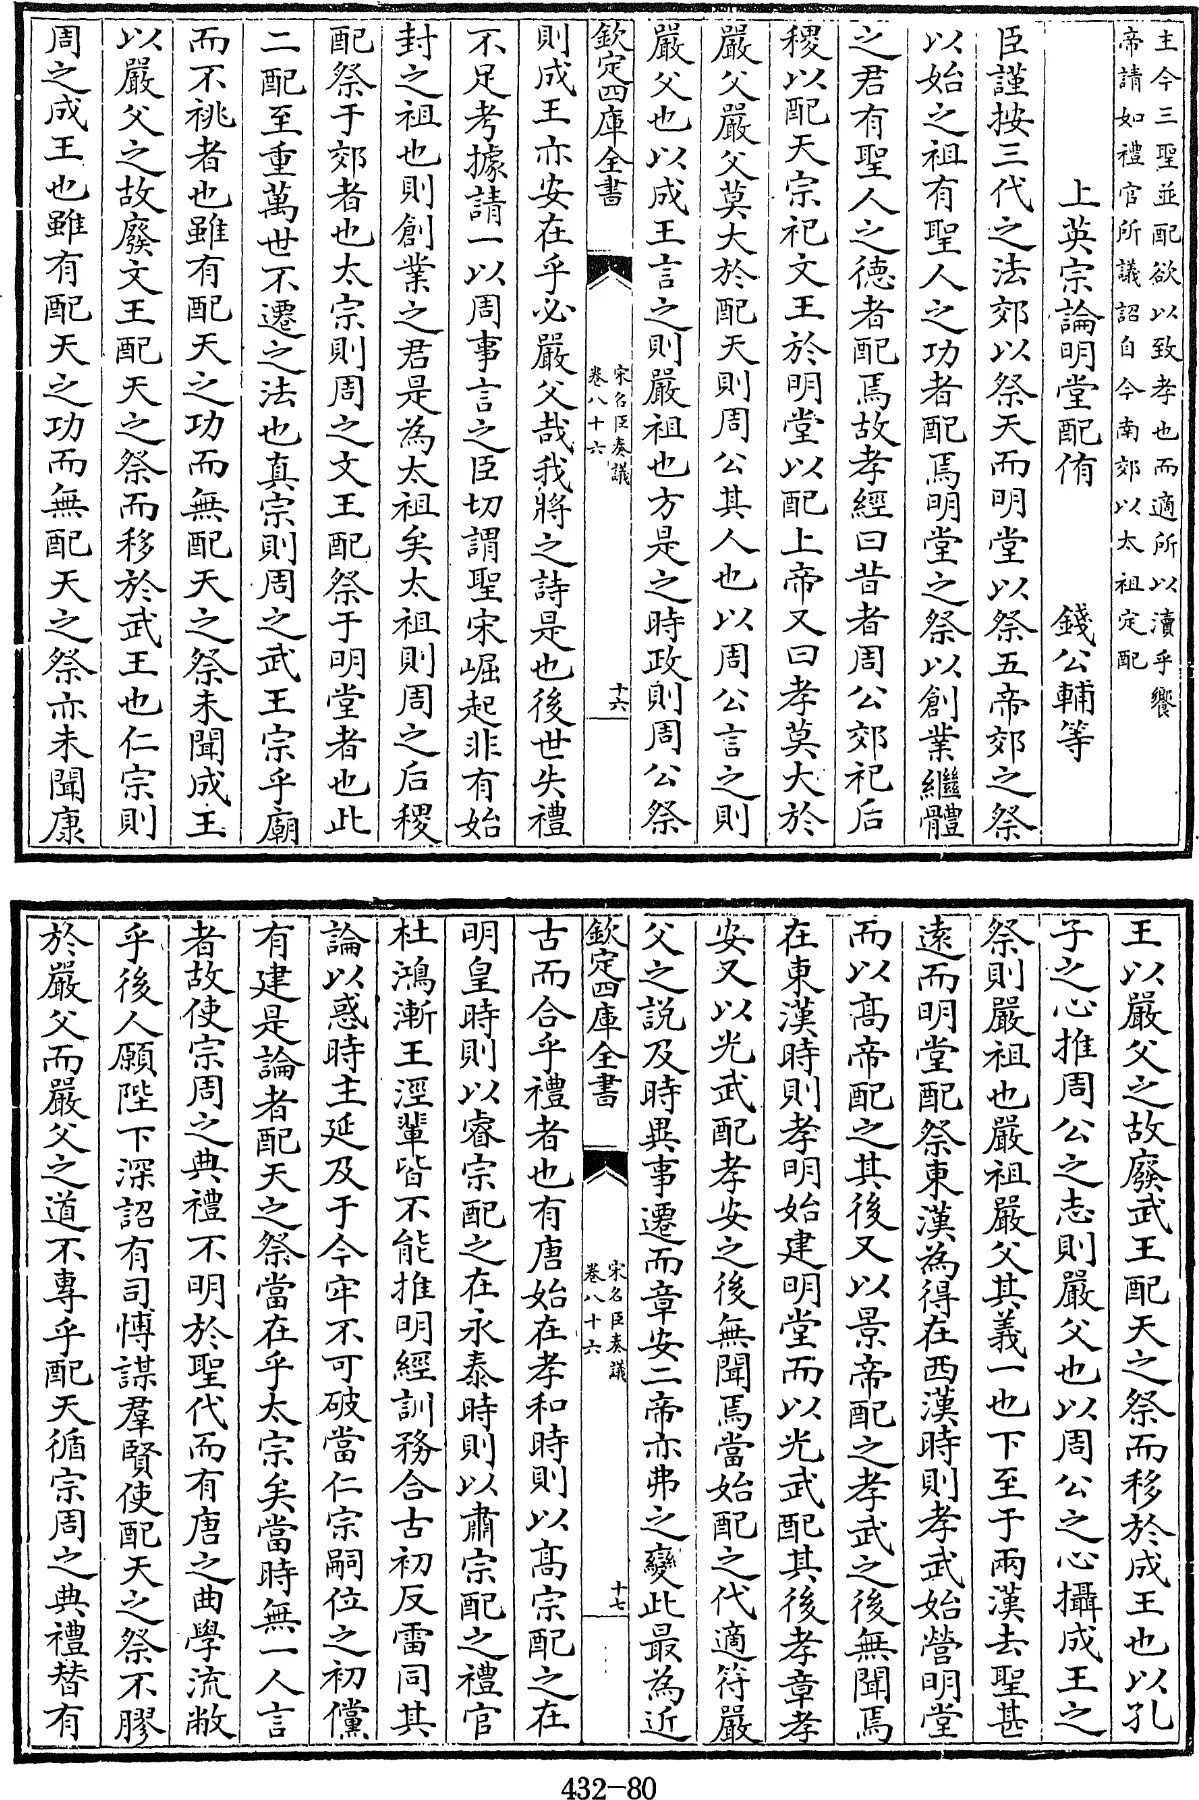 主今三聖並配欲以致孝也而適所以瀆乎饗
帝請如禮官所議詔自今南郊以太祖定配
上英宗論明堂配侑　錢公輔等
臣謹按三代之法郊以祭天而明堂以祭五帝郊之祭
以始之祖有聖人之功者配焉明堂之祭以創業繼體
之君有聖人之德者配焉故孝經曰昔者周公郊祀后
稷以配天宗祀文王於明堂以配上帝又曰孝莫大於
嚴父嚴父莫大於配天則周公其人也以周公言之則
嚴父也以成王言之則嚴祖也方是之時政則周公祭
欽定四庫全書
宋名臣奏議
卷八十六
十六
則成王亦安在乎必嚴父哉我將之詩是也後世失禮
不足考據請一以周事言之臣切謂聖宋崛起非有始
封之祖也則創業之君是為太祖矣太祖則周之后稷
配祭于郊者也太宗則周之文王配祭于明堂者也此
二配至重萬世不遷之法也真宗則周之武王宗乎廟
而不祧者也雖有配天之功而無配天之祭未聞成王
以嚴父之故廢文王配天之祭而移於武王也仁宗則
周之成王也雖有配天之功而無配天之祭亦未聞康
王以嚴父之故廢武王配天之祭而移於成王也以孔
子之心推周公之志則嚴父也以周公之心攝成王之
祭則嚴祖也嚴祖嚴父其義一也下至于兩漢去聖甚
遠而明堂配祭東漢為得在西漢時則孝武始營明堂
而以高帝配之其後又以景帝配之孝武之後無聞焉
在東漢時則孝明始建明堂而以光武配其後孝章孝
安又以光武配孝安之後無聞焉當始配之代適符嚴
父之說及時異事遷而章安二帝亦弗之變此最為近
欽定四庫全書
宋名臣奏議
卷八十六
十七
古而合乎禮者也有唐始在孝和時則以高宗配之在
明皇時則以睿宗配之在永泰時則以肅宗配之禮官
杜鴻漸王涇輩皆不能推明經訓務合古初反雷同其
論以惑時主延及于今牢不可破當仁宗嗣位之初儻
有建是論者配天之祭當在乎太宗矣當時無一人言
者故使宗周之典禮不明於聖代而有唐之曲學流敝
乎後人願陛下深詔有司博謀羣賢使配天之祭不膠
於嚴父而嚴父之道不專乎配天循宗周之典禮替有
432-80